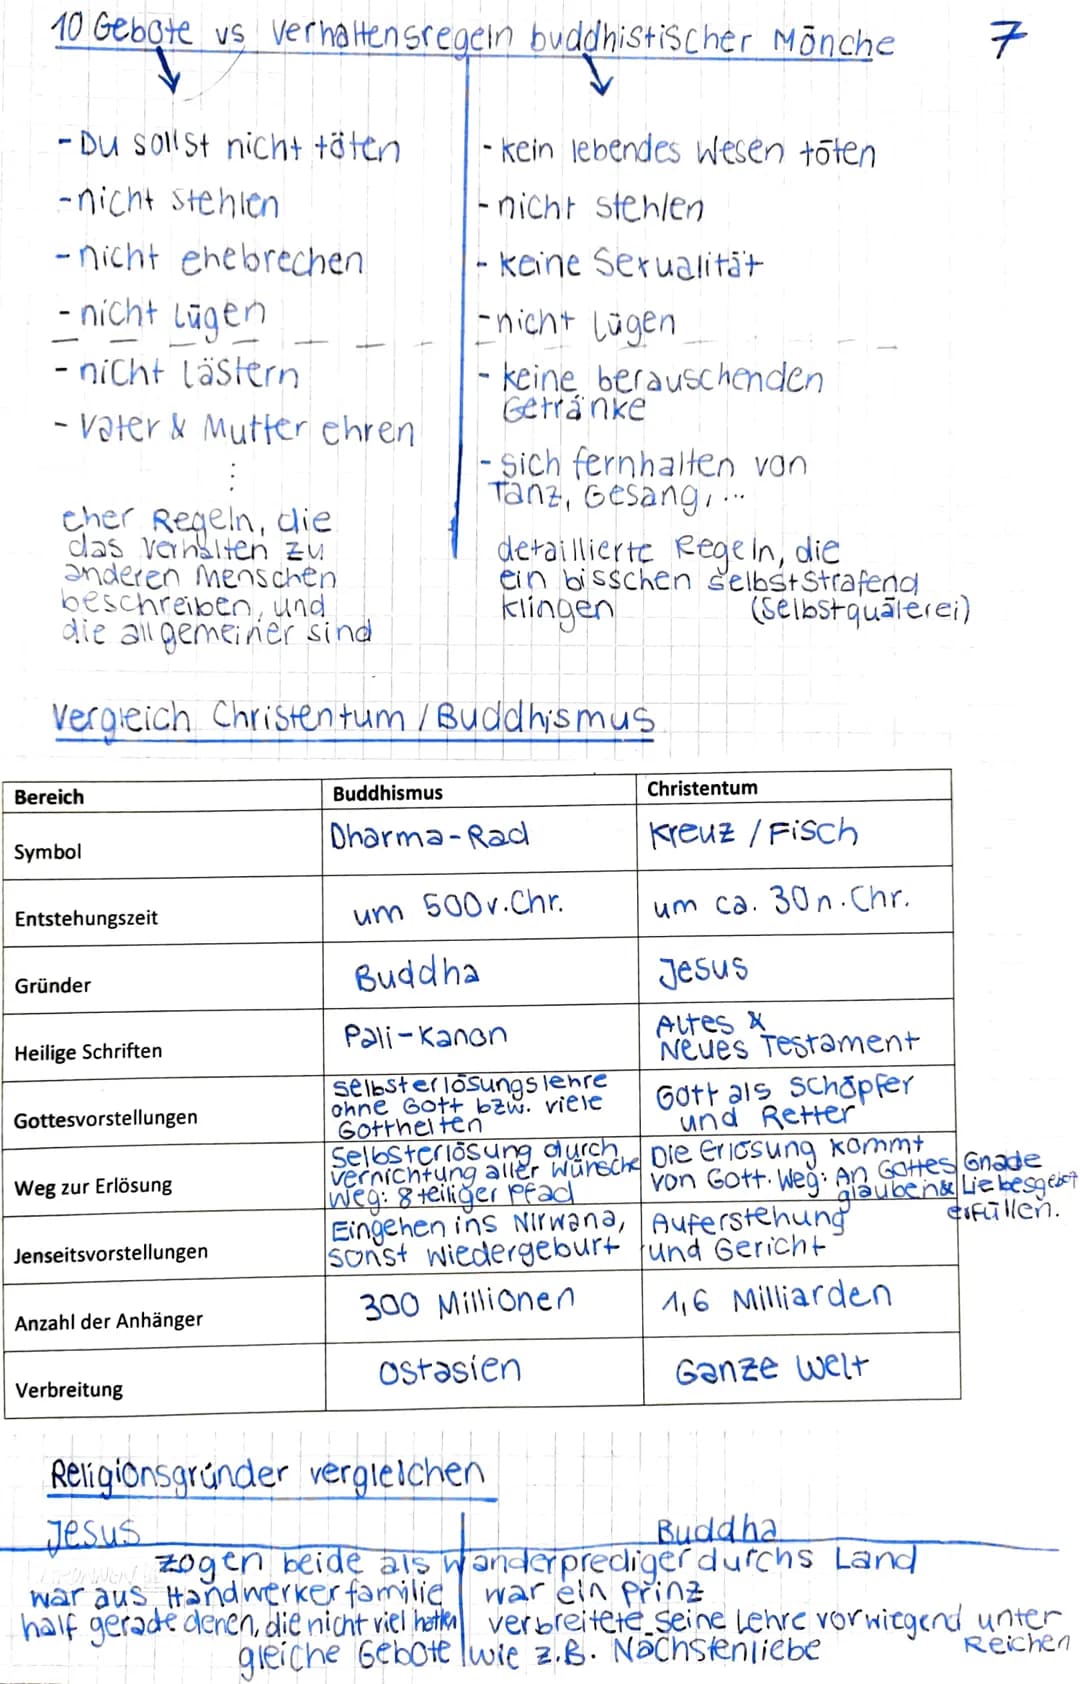 10 Gebote vs Verhaltensregeln buddhistischer Mönche
7
- Du sollst nicht töten
- nicht stehlen
- nicht ehebrechen
- nicht Lügen
- nicht lästern
- Vater & Mutter ehren
⋮
eher Regeln, die
das Verhalten zu
anderen Menschen
beschreiben, und
die allgemeiner sind
- kein lebendes Wesen töten
- nicht stehlen
- keine Sexualität
- nicht Lügen
- keine berauschenden
Getränke
- sich fernhalten von
Tanz, Gesang, ...
detaillierte Regeln, die
ein bisschen selbststrafend
klingen (Selbstquälerei)
Vergleich Christentum / Buddhismus
Bereich Buddhismus Christentum
Symbol Dharma-Rad Kreuz / Fisch
Entstehungszeit um 500 v. Chr. um ca. 30 n. Chr.
Gründer Buddha Jesus
Heilige Schriften Pali-Kanon Altes &
Neues Testament
Gottesvorstellungen
Selbsterlösungslehre
ohne Gott bzw. viele
Gottheiten
Gott als Schöpfer
und Retter
Weg zur Erlösung
Selbsterlösung durch
Vernichtung aller Wünsche
Weg: 8 teiliger Pfad
Die Erlösung kommt
von Gott. Weg: An Gottes Gnade
glauben & Liebesgebot
erfüllen.
Jenseitsvorstellungen
Eingehen ins Nirwana,
sonst Wiedergeburt
Auferstehung
und Gericht
Anzahl der Anhänger 300 Millionen 1,6 Milliarden
Verbreitung Ostasien Ganze Welt
Religionsgründer vergleichen
Jesus Buddha
zogen beide als Wanderprediger durchs Land
war aus Handwerkerfamilie war ein Prinz
half gerade denen, die nicht viel hatten verbreitete seine Lehre vorwiegend unter
Reichen
gleiche Gebote wie z.B. Nächstenliebe